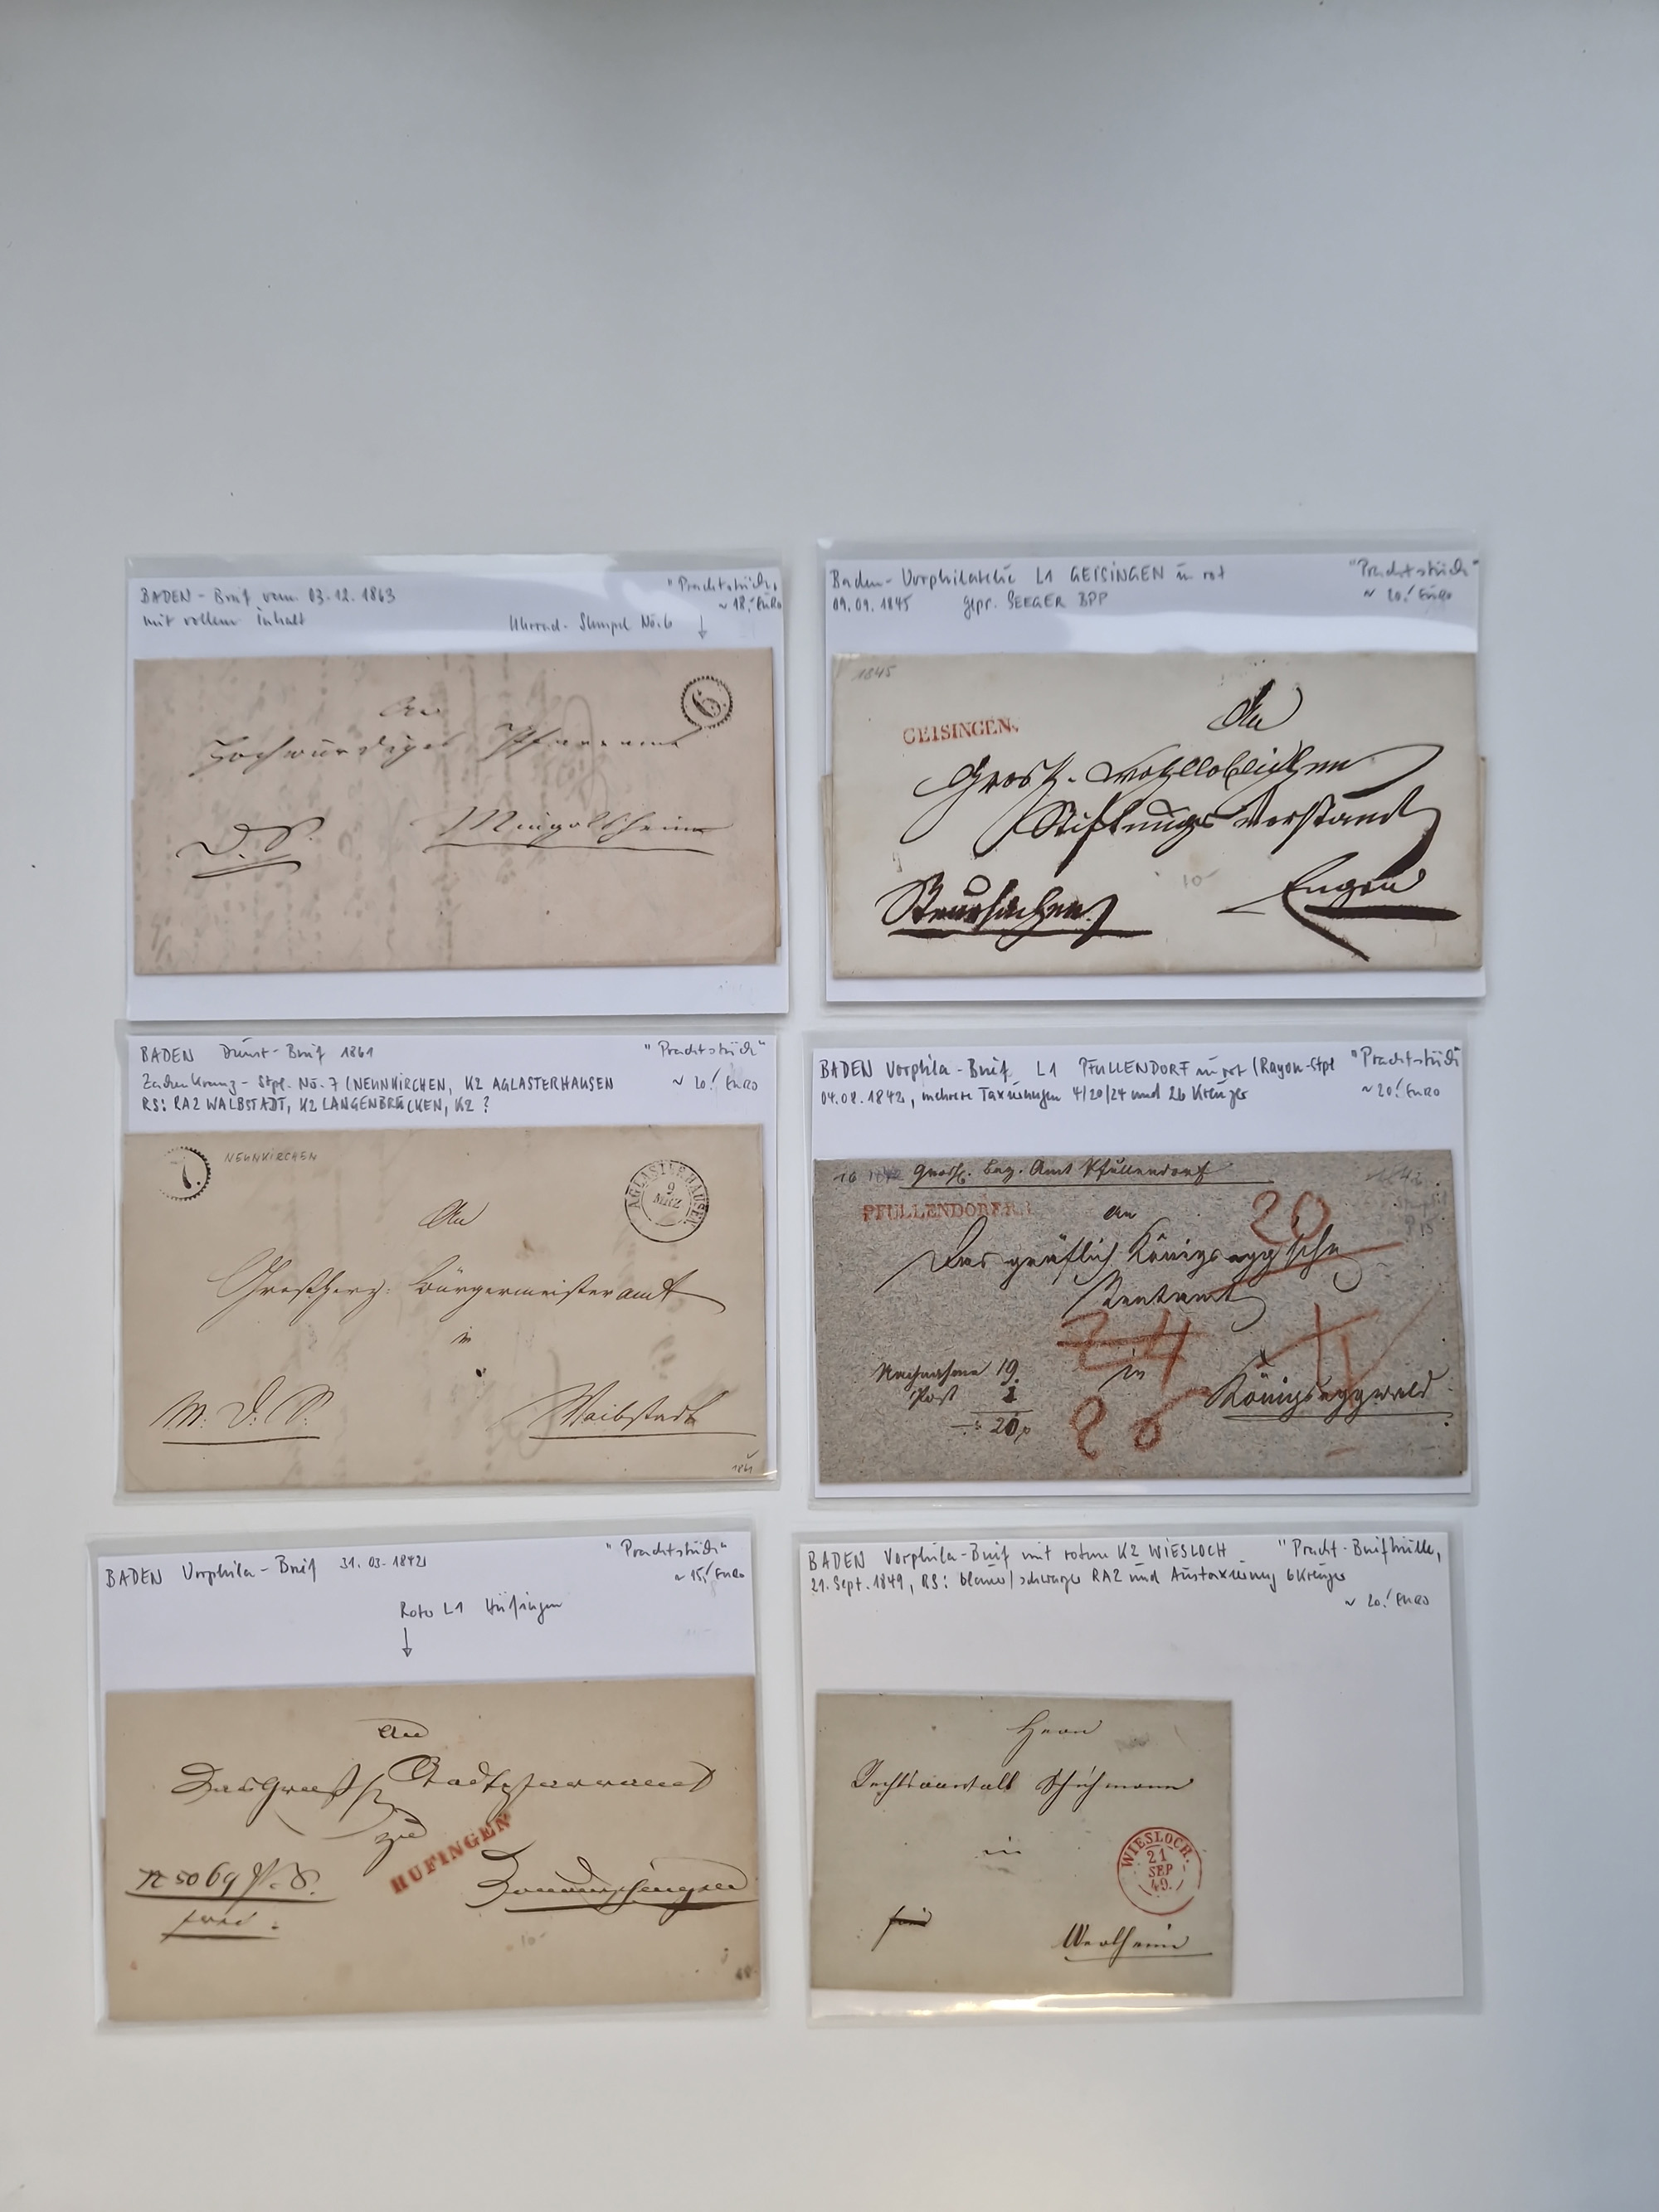 BADEN - Brief vom 03.12.1863
mit vollem Inhalt
"Prachtstück"
~ 18.- Euro
Uhrrad-Stempel No.6
6
An
Hochwürdiges Pfarramt
D.S.
Mingolsheim
Baden-Vorphilatelie L1 GEISINGEN in rot
09.09.1845 gepr. SEEGER BPP
"Prachtstück"
~ 20.- Euro
1845
GEISINGEN.
An
Grosh. wohllöblichen
Stiftungs Vorstand
Steuersachen
Engen
10-
BADEN Dienst-Brief 1861
Zackenkranz-Stpl. No. 7 (NEUNKIRCHEN, K2 AGLASTERHAUSEN
RS: RA2 WAIBSTADT, K2 LANGENBRÜCKEN, K2 ?
"Prachtstück"
~ 20.- EURO
7.
NEUNKIRCHEN
AGLASTERHAUSEN
9
MRZ
An
Großherz. Bürgermeisteramt
in
M. D. S.
Waibstadt
1861
BADEN Vorphila-Brief L1 PFULLENDORF in rot (Rayon-Stpl
04.08.1842, mehrere Taxierungen 4/20/24 und 26 Kreuzer
"Prachtstück"
~ 20.- EURO
Grosh. Bez. Amt Pfullendorf
PFULLENDORF.R.1.
An
20
Das gräflich Königseggsche
Rentamt
24
Nachnahme 19.
Post 1
20
in
26
Königseggwald
BADEN Vorphila-Brief 31.03.1842
"Prachtstück"
~ 15.- Euro
Roter L1 Hüfingen
An
Das Grosh. Stadtpfarramt
zu
HUFINGEN
N 5069 P. S.
frei.
Donaueschingen
10-
BADEN Vorphila-Brief mit rotem K2 WIESLOCH
21. Sept. 1849, RS: blauer/schwarzer RA2 und Austaxierung 6 Kreuzer
"Pracht-Briefhülle"
~ 20.- EURO
Herrn
Rechtsanwalt Schuhmann
in
WIESLOCH.
21
SEP
49.
frei
Wertheim